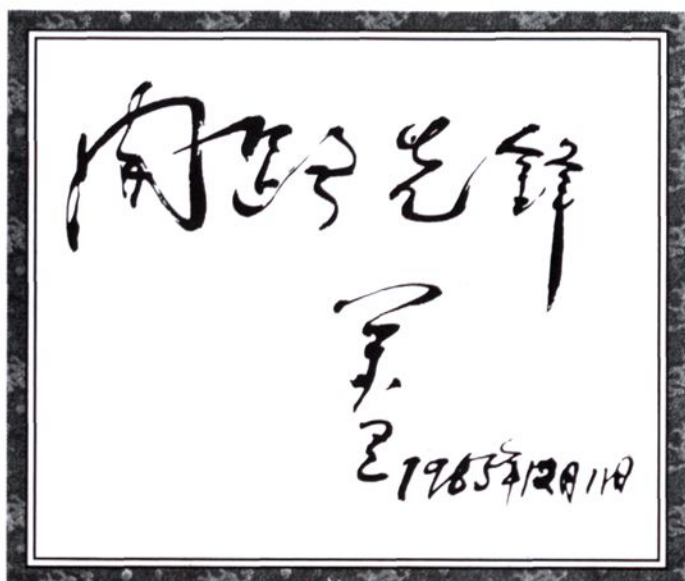 開路先鋒
萬里 1985年12月11日